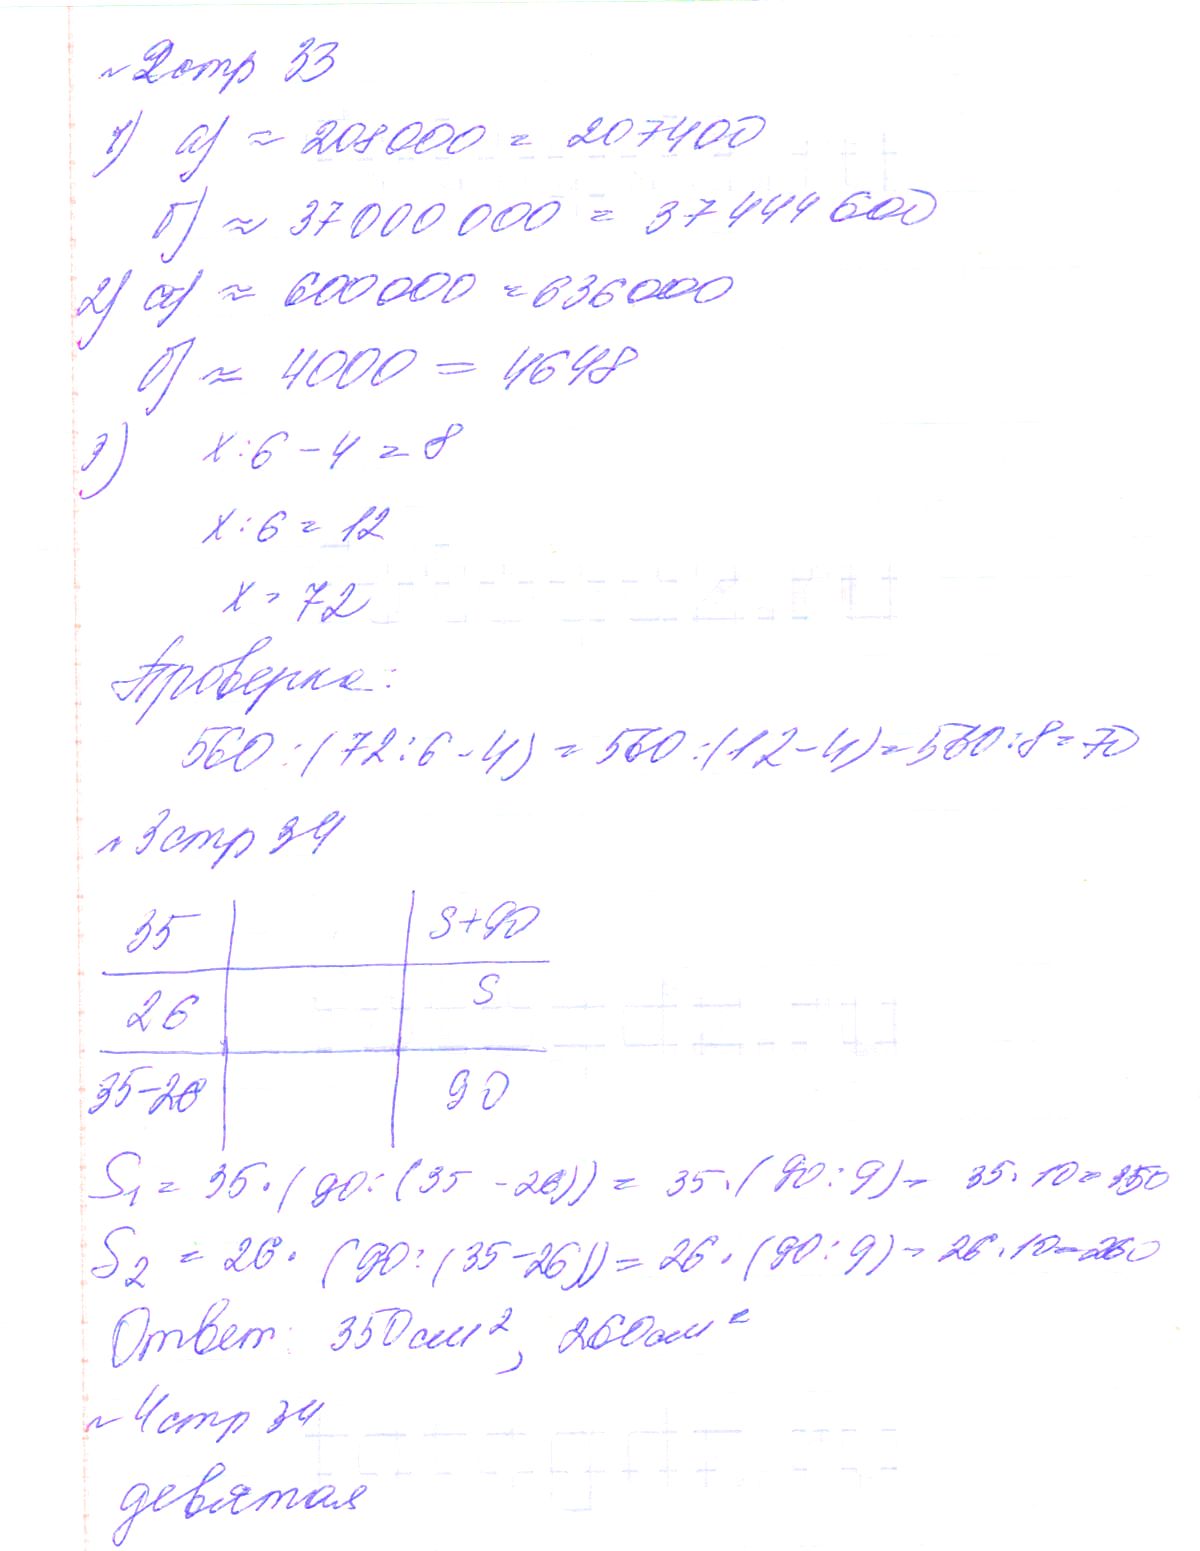 ~ 2 стр 33
1) а) ≈ 208000 = 207400
б) ≈ 37000 000 = 37444 600
2) а) ≈ 600000 = 636000
б) ≈ 4000 = 4648
3) x : 6 - 4 = 8
x : 6 = 12
x = 72
Проверка:
560 : (72 : 6 - 4) = 560 : (12 - 4) = 560 : 8 = 70
~ 3 стр 34
35 S+90
26 S
35-26 90
S1 = 35 · (90 : (35 - 26)) = 35 · (90 : 9) = 35 · 10 = 350
S2 = 26 · (90 : (35 - 26)) = 26 · (90 : 9) = 26 · 10 = 260
Ответ: 350 см², 260 см²
~ 4 стр 34
девятая